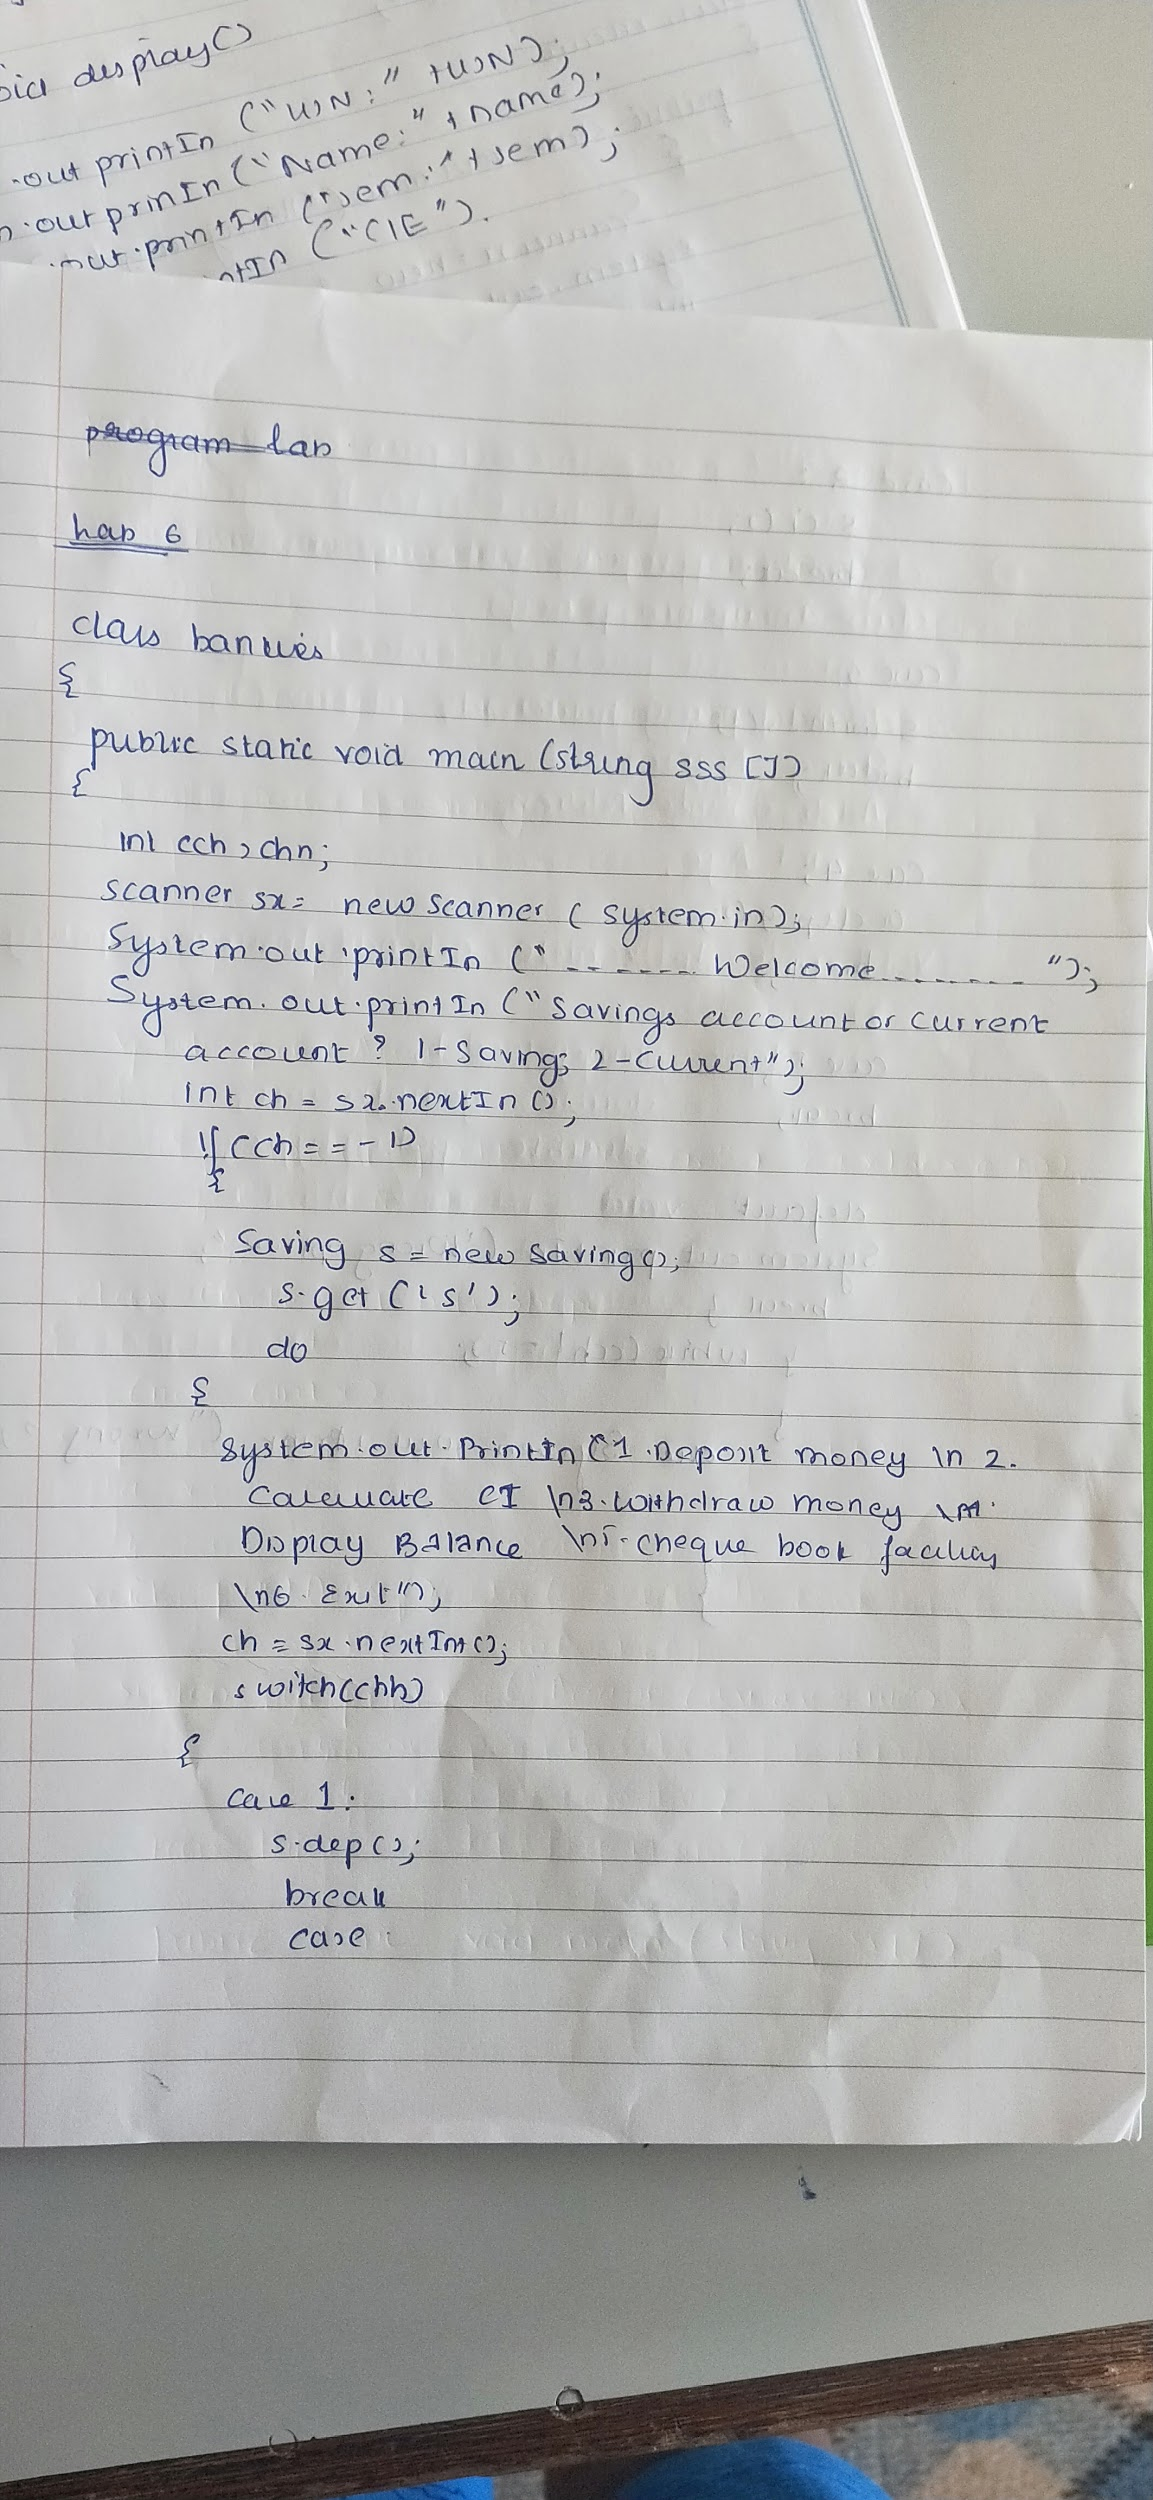 display()
.out println ("USN:" +USN);
.out prinIn ("Name:" + name);
.out.printIn ("sem:" + sem);
ntIn ("CIE").
program lab
Lab 6
class bankes
{
public static void main (string sss [])
{
int cch, chn;
scanner sx= new scanner (system.in);
System.out.printIn ("------- Welcome-------- ");
System.out.printIn ("Savings account or current
account ? 1-Saving; 2-Current");
int ch = sx.nextIn ();
if (ch == -1)
{
Saving s = new saving();
s.get ('s');
do
{
System.out.PrintIn ("1.Deposit money \n 2.
Calculate CI \n3.withdraw money \n4.
Display Balance \n5-cheque book facility
\n6. Exit");
ch = sx.nextInt();
switch(chh)
{
case 1:
s.dep();
break
case :